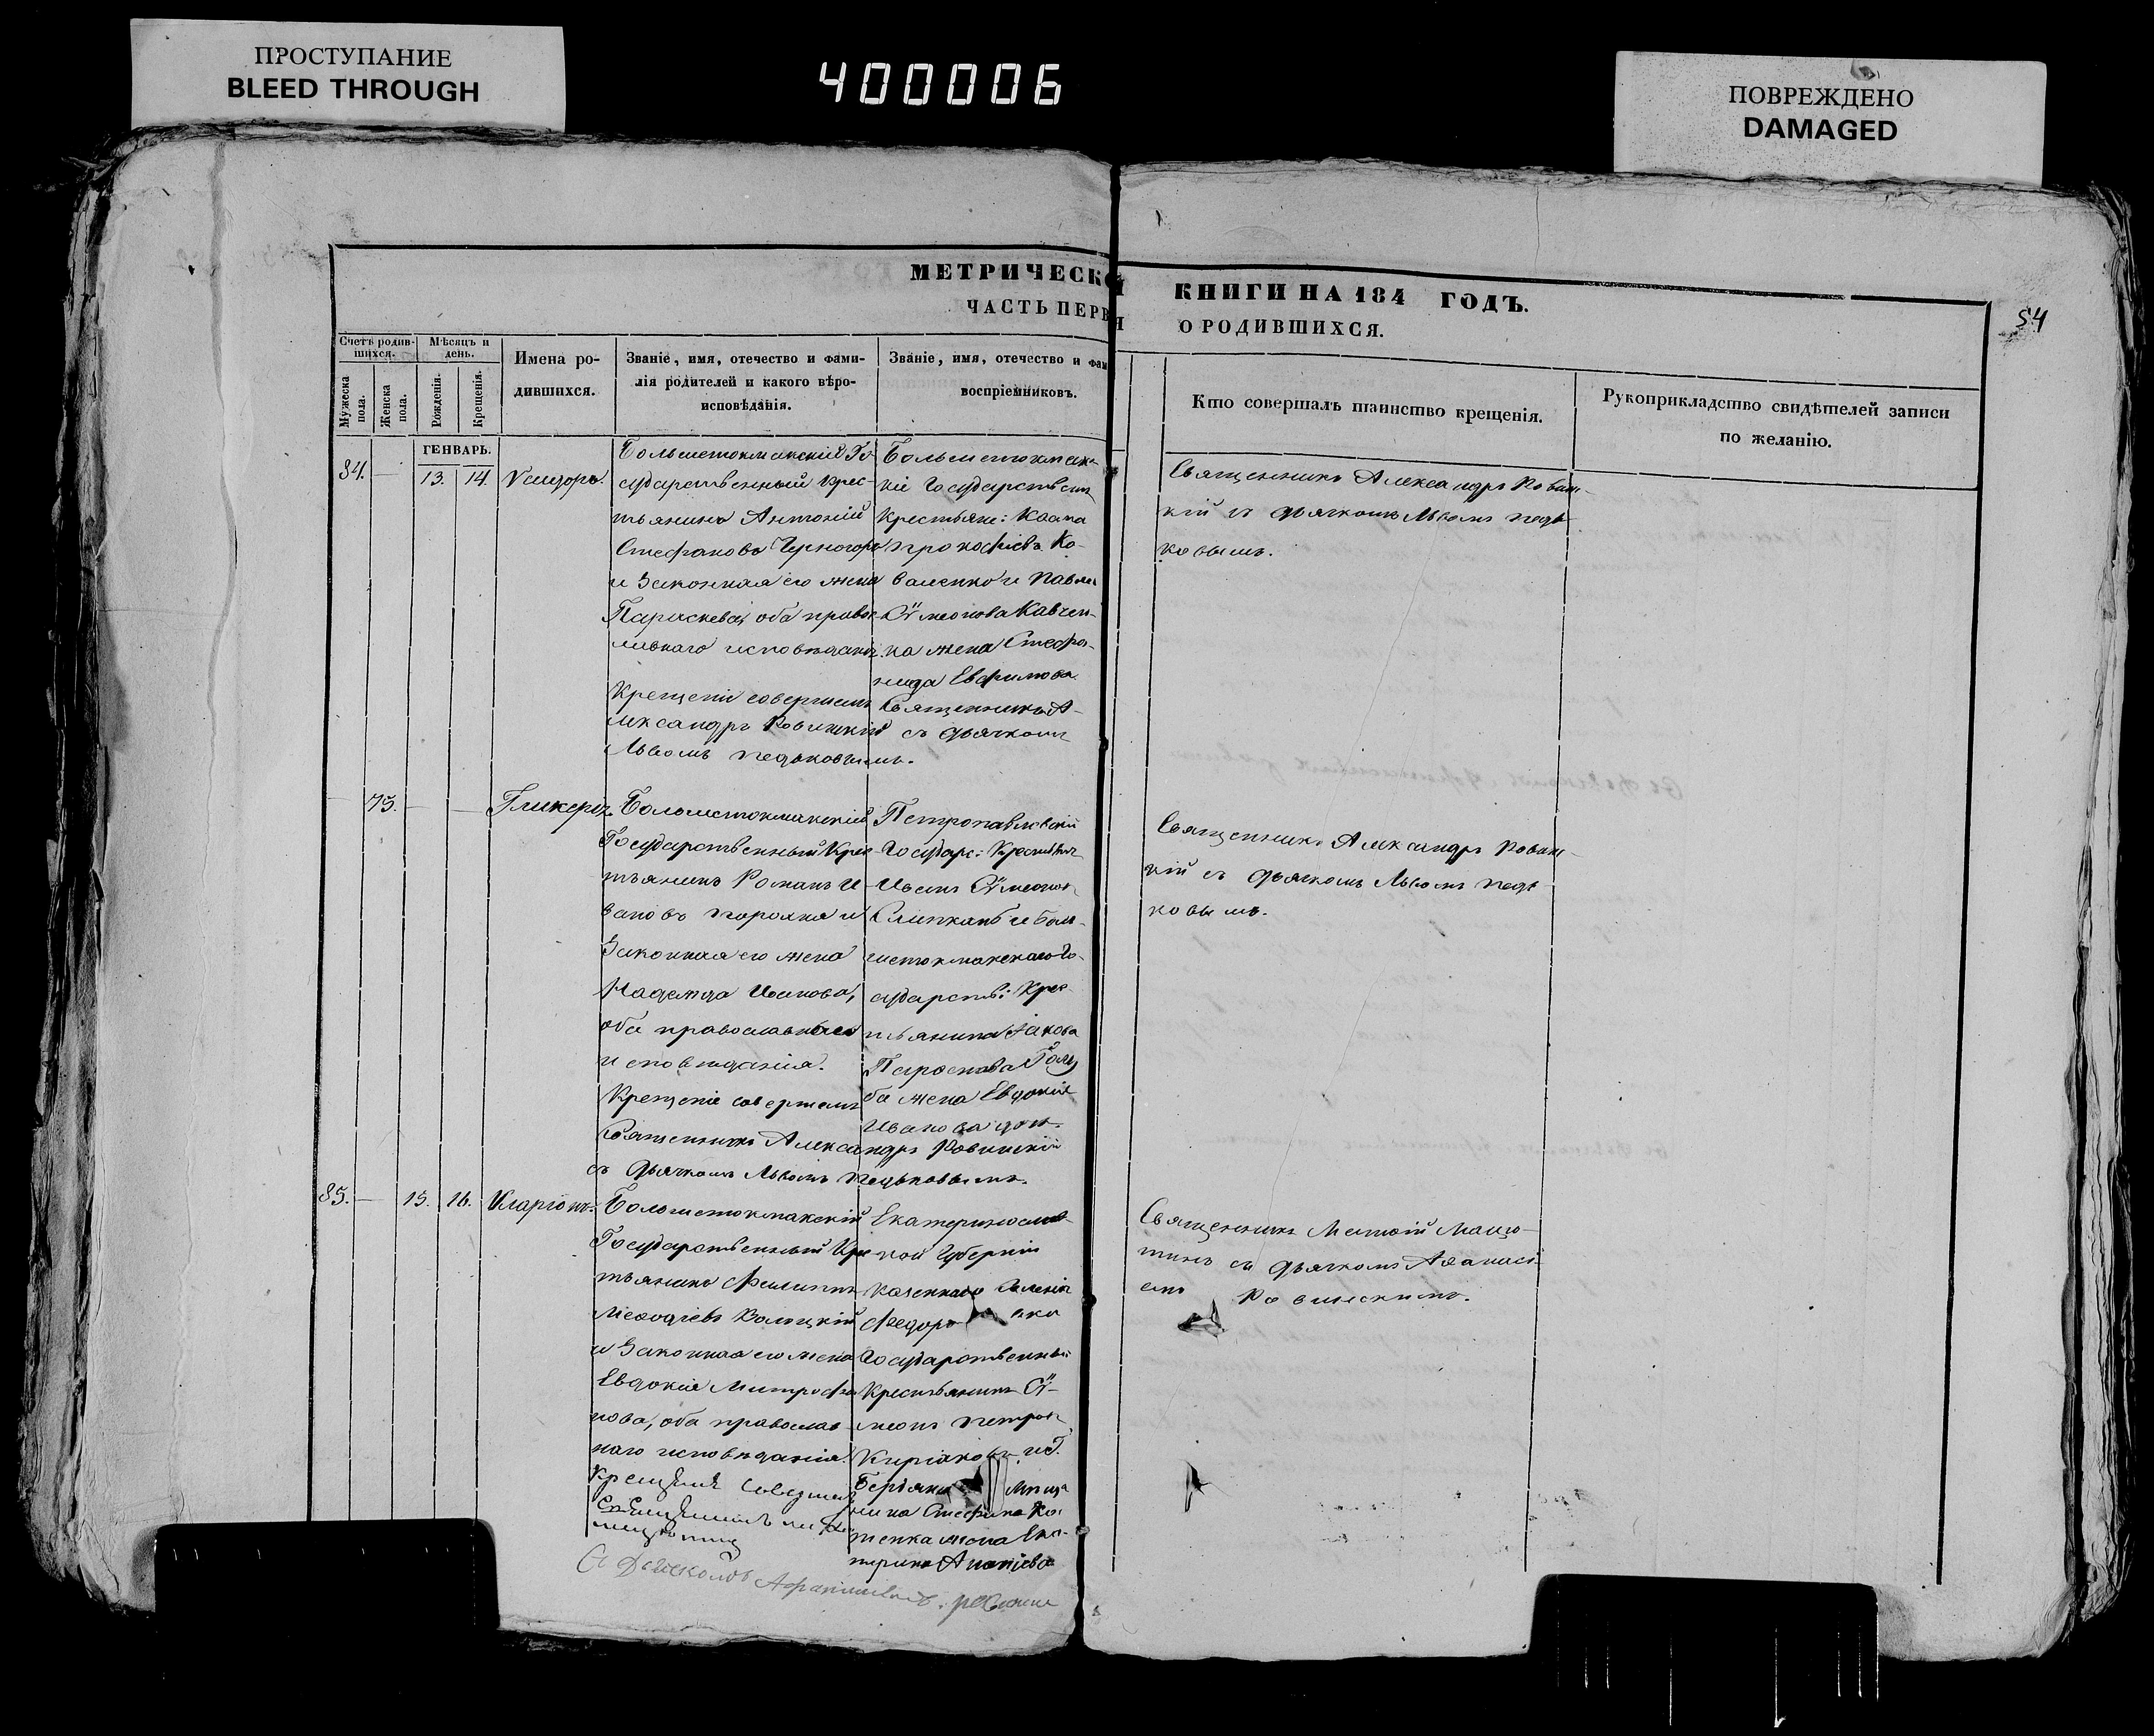 ПРОСТУПАНИЕ
BLEED THROUGH
400006
ПОВРЕЖДЕНО
DAMAGED
54
МЕТРИЧЕСКОЙ КНИГИ НА 184 ГОДЪ.
ЧАСТЬ ПЕРВ Я О РОДИВШИХСЯ.
Счетъ родив-
шихся.
Мужеска
пола.
Женска
пола.
Мѣсяцъ и
день.
Рожденія.
Крещенія.
Имена ро-
дившихся.
Званіе, имя, отечество и фами-
лія родителей и какого вѣро-
исповѣданія.
Званіе, имя, отечество и фам
воспріемниковъ.
Кто совершалъ таинство крещенія.
Рукоприкладство свидѣтелей записи
по желанію.
ГЕНВАРЬ.
84. — 13. 14.
Большетокмакскій Го-
сударственный Крес-
тьянинъ Антоній
Стефановъ
и Законная его жена
Параскева, оба правос-
лавнаго исповѣданія.
Крещеніе совершалъ Священникъ А-
лександръ Ровинскій съ дьячкомъ
Львомъ Педьковымъ.
Большетокмакс-
кіе Государствен.
Крестьяне: Косма
Прокофіевъ Ко-
валенко и
Сѵмеонова Кавчен-
ка жена Стефа-
нида Евфимова
Священникъ Александръ Ровин-
кій съ дьячкомъ Львомъ Педь-
ковымъ.
75. — — Гликерія.
Большетокмакскій
Государственный Крес-
тьянинъ Романъ И-
вановъ и
Законная его жена
Надежда Иванова,
оба православнаго
исповѣданія.
Крещеніе совершалъ
Священникъ Александръ Ровинскій
съ дьячкомъ Львомъ Педьковымъ.
Петропавловскій
Государс: Крестьян.
Иванъ Сѵмеонов
и Боль-
шетокмакскаго Го-
сударств: Крес-
тьянина Іакова
ба жена Евдокія
Иванова
Священникъ Александръ Ровин-
кій съ дьячкомъ Львомъ Педь-
ковымъ.
85. — 15. 16. Иларіонъ.
Большетокмакскій
Государственный Крес-
тьянинъ Филиппъ
Меѳодіевъ
и Законная его жена
Евдокія Митрофа-
нова, оба православ-
наго исповѣданія.
Крещеніе совершалъ
Священникъ
съ Дьячкомъ
Екатеринослав-
кой Губерніи
Казеннаго Селенія
Федоро вка
Государственный
Крестьянинъ Сѵ-
меонъ Петровъ
Киріаковъ и Г.
Бердянс Мѣща-
нина Стефана Ко-
тенка жена Ека-
терина Ананіева
Священникъ Матѳій
съ дьячкомъ Аѳанасі-
емъ Ровинскимъ.